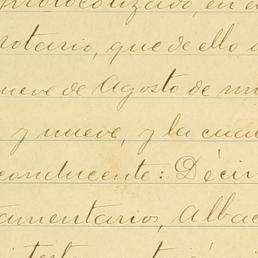 protocolizado, en e
notario, que de ello d
nueve de Agosto de mi
y nueve, y la cua
conducente: Déci
tamentarios, Albac